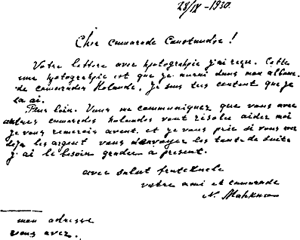 28/IV - 1930.
Cher camarade Constandse!
Votre lettre avec fotografie j'ai reçu. Cette
une fotografie est que je aurai dans mon album
de camarades Holande. Je suis tres content que je
la ai.
Plus loin. Vous me communiquez que vous avec
autres camarades holandes vont résolu aider moi
je vous remercis avant, et je vous prie si vous avez
déja les argent vous envoyer les tout de suite
j'ai le besoin gendre a present.
avec salut fraternele
votre ami et camarade
N. Makhno
mon adresse
vous avez.